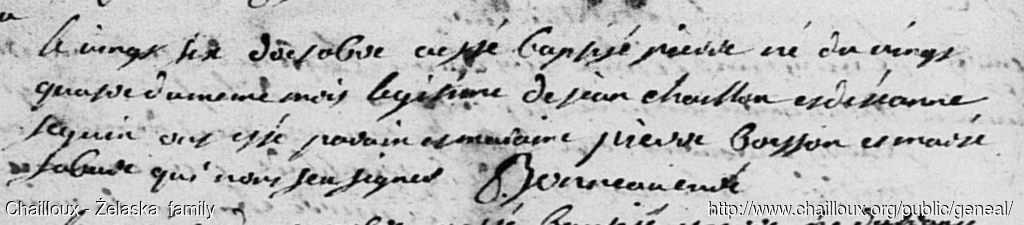 le vingt six d'octobre a esté baptisé pierre né du vingt
quatre du meme mois legitime de jean chaillou et de jeanne
seguin ont esté parain et maraine pierre Boisson et marie
qui n'ont seu signer Bonneau curé
Chailloux - Żelaska family
http://www.chailloux.org/public/geneal/